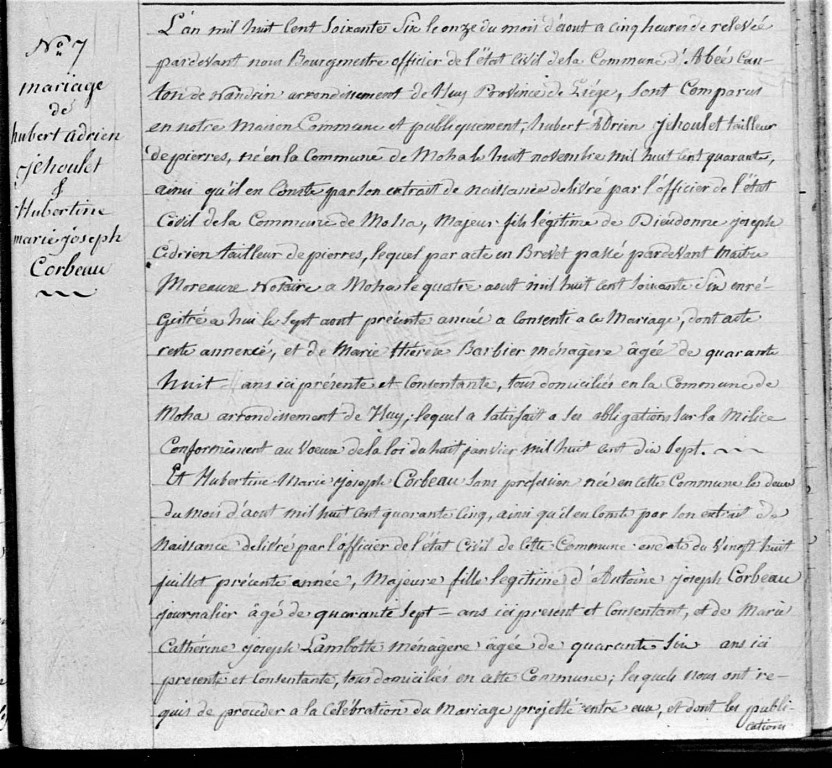 No 7
mariage
de
hubert adrien
Jehoulet
&
Hubertine
marie joseph
Corbeau
L'an mil huit Cent Soixante Six le onze du mois d'aout a cinq heures de relevée
pardevant nous Bourgmestre officier de l'état Civil dela Commune d'Abée Can-
ton de Nandrin arrondissement de Huy Province de Liége, Sont Comparus
en notre Maison Commune et publiquement, hubert Adrien Jehoulet tailleur
de pierres, né en la Commune de Moha le huit novembre mil huit cent quarante,
ainsi qu'il en Conste par son extrait de naissance delivré par l'officier de l'état
Civil dela Commune de Moha, Majeur fils légitime de Dieudonne joseph
Adrien tailleur de pierres, lequel par acte en Brevet passé pardevant Maitre
Moreaux Notaire a Moha le quatre aout mil huit cent soixante Six enré-
gistré a hui le Sept aout présente année a Consenti a ce Mariage, dont acte
reste annexé, et de Marie thérèse Barbier ménagere âgée de quarante
huit ans ici présente et Consentante, tous domiciliés en la Commune de
Moha arrondissement de Huy, lequel a satisfait a ses obligations sur la Milice
Conformément au Voeux de la loi du huit janvier mil huit cent dix Sept.
Et Hubertine Marie joseph Corbeau Sans profession née en cette Commune les deux
du mois d'aout mil huit cent quarante cinq, ainsi qu'il en Conste par son extrait de
naissance delivré par l'officier de l'état Civil de Cette Commune en date du Vingt huit
juillet présente année, Majeure fille legitime d'Antoine joseph Corbeau
journalier âgé de quarante Sept ans ici present et Consentant, et de Marie
Cathérine joseph Lambotte ménagere âgée de quarante Six ans ici
presente et Consentante, tous domiciliés en cette Commune; lesquels nous ont re-
quis de proceder a la Célébration du Mariage projetté entre eux, et dont les publi-
cations